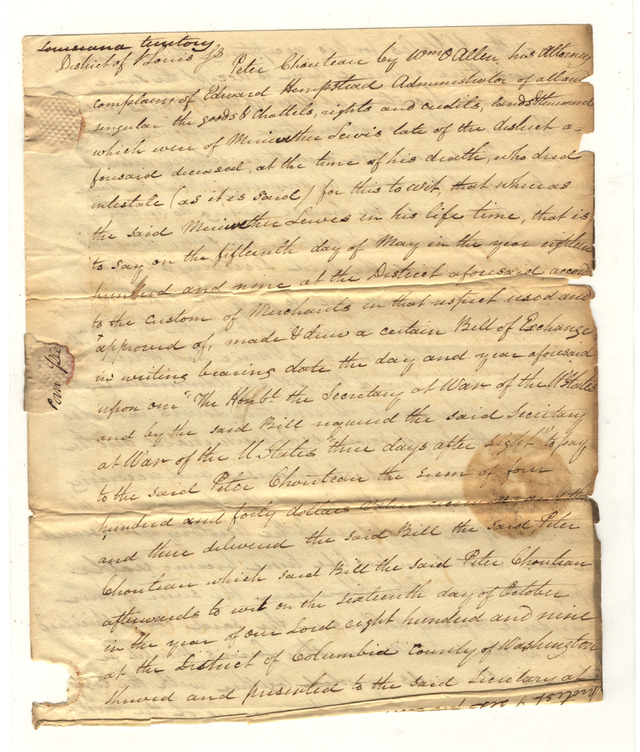 Louisiana territory
District of St Louis Ss
Peter Chouteau by Wm O Allen, his Attorney
complains of Edward Hempstead Administrator of all and
singular the goods & Chattels, rights and credits, lands & tenements
which were of Meriwether Lewis late of the district a-
foresaid deceased, at the time of his death, who died
intestate (as it is said) for this to wit, that whereas
the said Meriwether Lewis in his life time, that is
to say on the fifteenth day of May in the year eighteen
hundred and nine at the District aforesaid accord
to the custom of Merchants in that respect used and
approved of, made & drew a certain Bill of Exchange
in writing bearing date the day and year aforesaid
upon one "The Honbl. the Secretary at War of the U States
and by the said Bill required the said Secretary
at War of the U States "three days after sight" to pay
to the said Peter Chouteau the sum of four
hundred and forty dollars and then
and there delivered the said Bill the said Peter
Chouteau which said Bill the said Peter Chouteau
afterwards to wit on the Sixteenth day of October
in the year of our Lord eight hundred and nine
at the District of Columbia County of Washington
shewed and presented to the said Secretary at